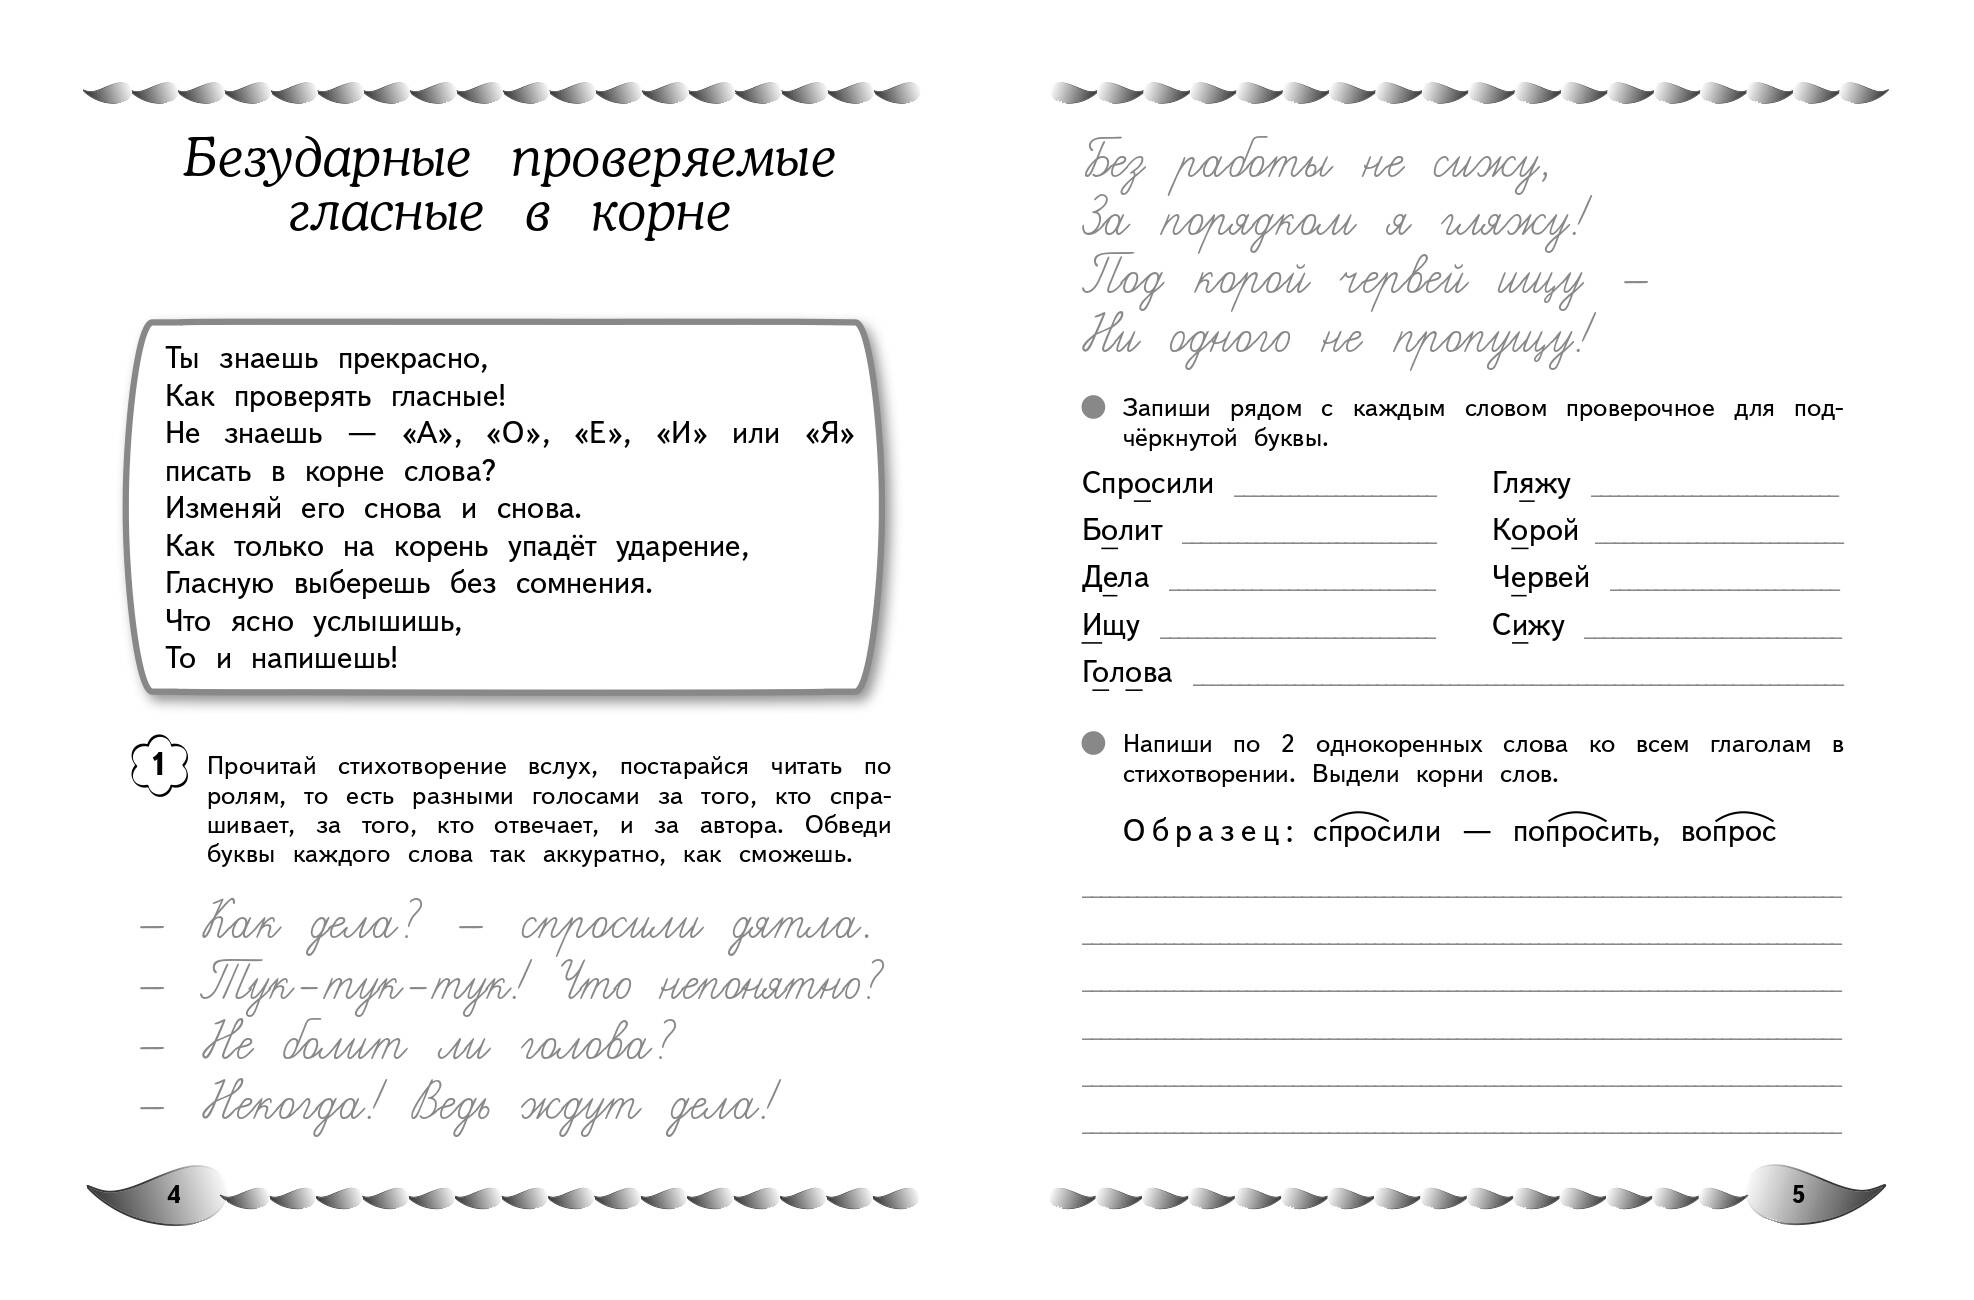 Безударные проверяемые
гласные в корне
Ты знаешь прекрасно,
Как проверять гласные!
Не знаешь — «А», «О», «Е», «И» или «Я»
писать в корне слова?
Изменяй его снова и снова.
Как только на корень упадёт ударение,
Гласную выберешь без сомнения.
Что ясно услышишь,
То и напишешь!
1
Прочитай стихотворение вслух, постарайся читать по
ролям, то есть разными голосами за того, кто спра-
шивает, за того, кто отвечает, и за автора. Обведи
буквы каждого слова так аккуратно, как сможешь.
– Как дела? – спросили дятла.
– Тук-тук-тук! Что непонятно?
– Не болит ли голова?
– Некогда! Ведь ждут дела!
4
Без работы не сижу,
За порядком я гляжу!
Под корой червей ищу –
Ни одного не пропущу!
Запиши рядом с каждым словом проверочное для под-
чёркнутой буквы.
Спросили Гляжу
Болит Корой
Дела Червей
Ищу Сижу
Голова
Напиши по 2 однокоренных слова ко всем глаголам в
стихотворении. Выдели корни слов.
Образец: спросили — попросить, вопрос
5